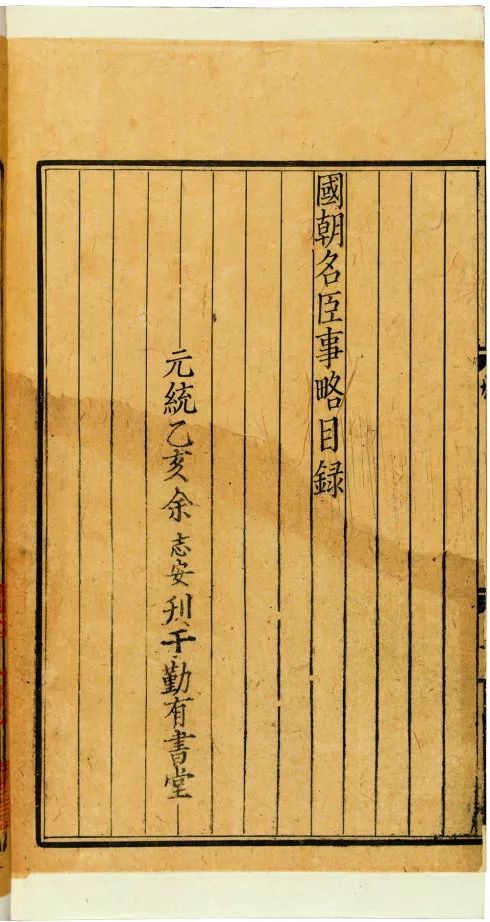 國朝名臣事略目録
元統乙亥余志安刋于勤有書堂